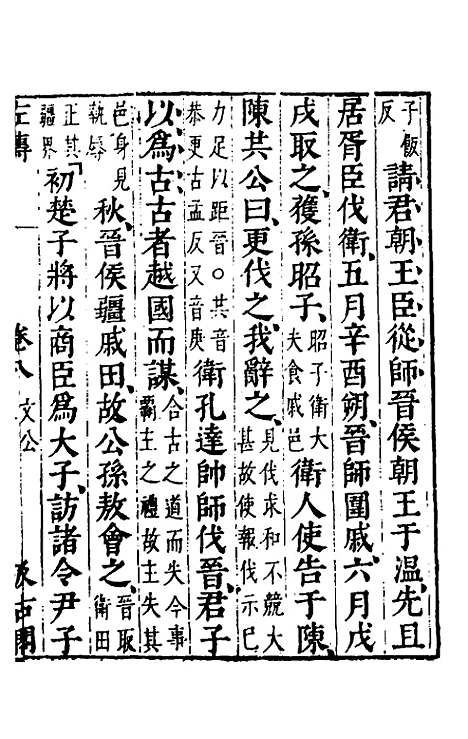 子飯
反
請君朝王臣從師晉侯朝王于溫先且
居胥臣伐衛五月辛酉朔晉師圍戚六月戊
戌取之獲孫昭子
昭子衛大
夫食戚邑
衛人使告于陳
陳共公曰更伐之我辭之
見伐求和不競大
甚故使報伐示己
力足以距晉○共音
恭更古孟反又音庚
衛孔達帥師伐晉君子
以為古古者越國而謀
合古之道而失今事
霸主之禮故主失其
邑身見
執辱
秋晉侯疆戚田故公孫敖會之
晉取
衛田
正其
疆界
初楚子將以商臣為大子訪諸令尹子
左傳
卷八
文公